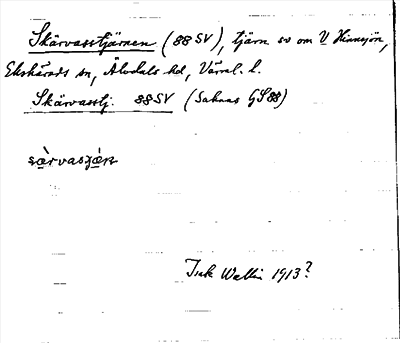 Skärvasstjärnen (88 SV), tjärn sv om V Hinnsjön,
Ekshärads sn, Älvdals hd, Värml. l.
Skärvasstj. 88 SV (Saknas GS 88)
særvasʒæ̀ɳ
Tick Wallin 1913?